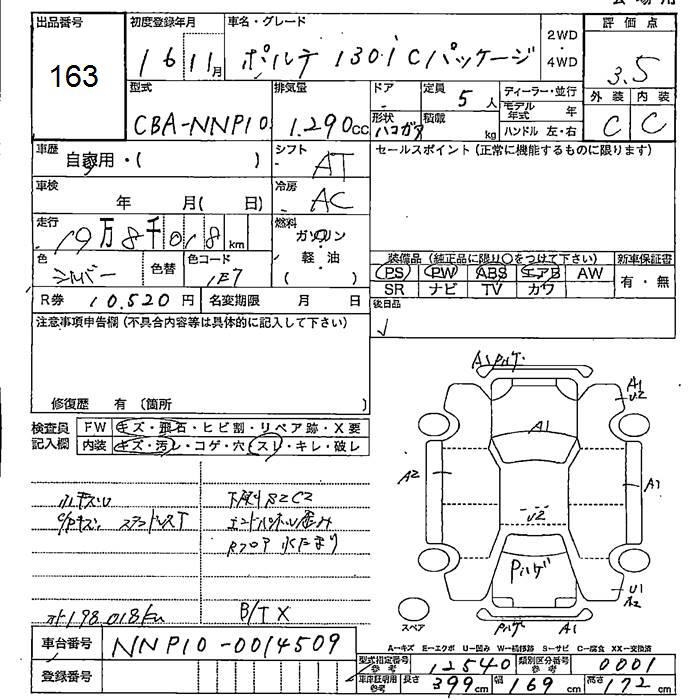 出品番号 初度登録年月 車名・グレード 2WD・4WD 評価点
163 16 11月 ポルテ 130i Cパッケージ 3.5
型式 排気量 ドア 定員 5人 ディーラー・並行 外装 内装
CBA-NNP10 1.290cc 形状 ハコガタ 積載 kg モデル年式 年 C C
ハンドル 左・右
車歴 自家用・( ) シフト AT セールスポイント(正常に機能するものに限ります)
車検 年 月( 日) 冷房 AC
走行 19万8千018km 燃料 ガソリン
軽・油
( )
色 シルバー 色替 色コード 1E7
装備品(純正品に限り○をつけて下さい) 新車保証書
PS PW ABS エアB AW 有・無
SR ナビ TV カワ
R券 10,520円 名変期限 月 日 後日品
注意事項申告欄(不具合内容等は具体的に記入して下さい)
修復歴 有 〔箇所
検査員記入欄 FW キズ・飛石・ヒビ割・リペア跡・X要
内装 キズ・汚レ・コゲ・穴・スレ・キレ・破レ
B/T X
車台番号 NNP10-0014509
登録番号
A1
A1
U2
A1
A2
A1
U2
U1
A2
A1
スペア
A=キズ E=エクボ U=凹み W=補修跡 S=サビ C=腐食 XX=交換済
型式指定番号 参考 12540 類別区分番号 参考 0001
車庫証明用 参考 長さ 399cm 幅 169cm 高さ 172cm